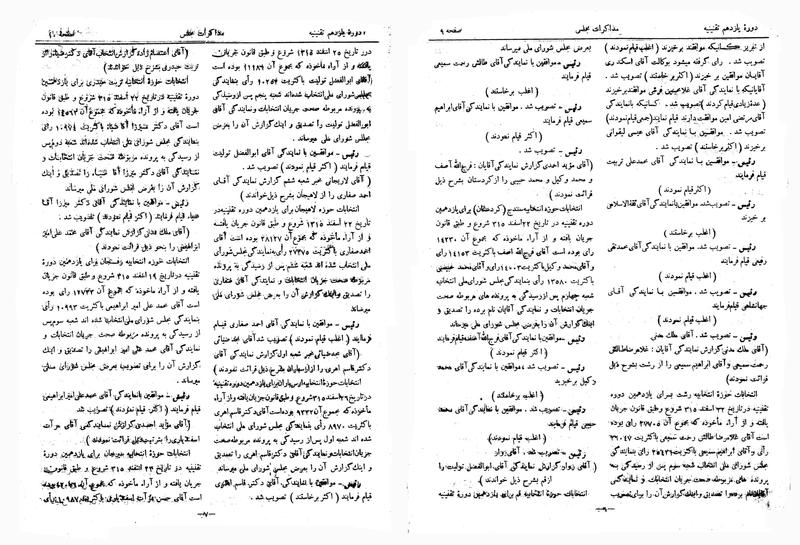 دورهٔ یازدهم تقنینیه
مذاکرات مجلس
صفحه ۹
از تبریز کسانیکه موافقند برخیزند (اغلب قیام نمودند)
تصویب شد . رای گرفته میشود بوکالت آقای اسکندری
آقایان موافقین بر خیزند (اکثر برخاستند) تصویب شد .
آقایانیکه با نمایندگی آقای غلامحسین فروش موافقند برخیزند
(عده زیادی قیام کردند) تصویب شد . کسانیکه با نمایندگی
آقای مرتضی امین موافقت دارند قیام نمایند (جمعی قیام نمودند)
تصویب شد . موافقین با نمایندگی آقای عیسی لیقوانی
برخیزند (اکثر برخاستند) تصویب شد .
رئیس ـ موافقین با نمایندگی آقای محمدعلی تربیت
قیام فرمایند
(اکثر قیام نمودند)
رئیس ـ تصویب شد، موافقین با نمایندگی آقای ثقةالاسلامی
بر خیزند
(اغلب برخاستند)
رئیس ـ تصویب شد . موافقین با نمایندگی آقای محمدتقی
قیام فرمایند
(اغلب قیام نمودند)
رئیس ـ تصویب شد . موافقین با نمایندگی آقای
جهانشاهی قیام فرمایند
(اغلب قیام نمودند)
رئیس ـ تصویب شد . آقای ملک مدنی
(آقای ملک مدنی گزارش نمایندگی آقایان : غلامرضا طالش
رحمت سمیعی و آقای ابراهیم سمیعی را از رشت بشرح ذیل
قرائت نمودند)
انتخابات حوزهٔ انتخابیه رشت برای یازدهمین دورهٔ
تقنینیه در تاریخ ۲۲ اسفند ۳۱۵ شروع و طبق قانون
جریان یافته و از آراء مأخوذه که مجموع آن ۲۷۷۰۵ رای بوده
است آقای غلامرضا طالش رحمت سمیعی باکثریت ۲۶۰۴۷
رأی و آقای ابراهیم سمیعی باکثریت ۲۵۴۳۶ رای بنمایندگی
مجلس شورای ملی انتخاب شده‌اند شعبه سوم پس از رسیدگی به
بعرض مجلس شورای ملی میرساند
رئیس ـ موافقین با نمایندگی آقای طالش رحمت سمیعی
قیام فرمایند
(اغلب برخاستند)
رئیس ـ تصویب شد . موافقین با نمایندگی آقای ابراهیم
سمیعی قیام فرمایند
(اکثر قیام نمودند)
رئیس ـ تصویب شد .
(آقای مؤید احمدی گزارش نمایندگی آقایان : فرج‌الله آصف
و محمد وکیل و محمد حبیبی را از کردستان بشرح ذیل
قرائت نمودند)
انتخابات حوزهٔ انتخابیه سنندج (کردستان) برای یازدهمین
دورهٔ تقنینیه در تاریخ ۲۲ اسفند ۳۱۵ شروع و طبق قانون
جریان یافته و از آراء مأخوذه که مجموع آن ۱۴۲۳۰
رای بوده است آقای فرج‌الله آصف باکثریت ۱۴۱۵۳ رای
شعبه چهارم پس از رسیدگی به پرونده های مربوطه صحت
جریان انتخابات و نمایندگی آقایان نام برده را تصدیق و
اینک گزارش آن را بعرض مجلس شورای ملی میرساند
رئیس ـ موافقین با نمایندگی آقای فرج‌الله آصف قیام فرمایند
(اکثر قیام نمودند)
رئیس ـ تصویب شد ، موافقین با نمایندگی آقای محمد
وکیل برخیزید
(اغلب برخاستند)
رئیس ـ تصویب شد . موافقین با نمایندگی آقای محمد
حبیبی قیام فرمایند.
(اغلب قیام نمودند)
رئیس ـ تصویب شد . آقای زوار
(آقای زوار گزارش نمایندگی آقای ابوالفضل تولیت را
از قم بشرح ذیل خواندند)
انتخابات حوزهٔ انتخابیه قم برای یازدهمین دورهٔ تقنینیه
دورهٔ یازدهم تقنینیه
مذاکرات مجلس
صفحه
در تاریخ ۲۵ اسفند ۳۱۵ شروع و طبق قانون جریان
یافته و از آراء مأخوذه که مجموع آن ۱۱۹۸۹ رای بوده
است آقای ابوالفضل تولیت باکثریت ۱۰۲۵۴ رأی بنمایندگی
مجلس شورای ملی انتخاب شده‌اند شعبه پنجم پس از رسیدگی
به پرونده مربوطه صحت جریان انتخابات و نمایندگی آقای
ابوالفضل تولیت را تصدیق و اینک گزارش آن را بعرض
مجلس شورای ملی میرساند .
رئیس ـ موافقین با نمایندگی آقای ابوالفضل تولیت
قیام فرمایند (اکثر قیام نمودند) تصویب شد .
(آقای لاریجانی مخبر شعبه ششم گزارش نمایندگی آقای
احمد صفاری را از لاهیجان بشرح ذیل خواندند)
انتخابات حوزهٔ لاهیجان برای یازدهمین دوره تقنینیه در
تاریخ ۲۲ اسفند ۳۱۵ شروع و طبق قانون جریان یافته
و از آراء مأخوذه که مجموع آن ۲۸۱۲۷ بوده است آقای
احمد صفاری باکثریت ۲۷۳۷۵ رأی به نمایندگی مجلس شورای
ملی انتخاب شده اند شعبه ششم پس از رسیدگی به پرونده
مربوطه صحت جریان انتخابات و نمایندگی آقای صفاری
را تصدیق و اینک گزارش آن را بعرض مجلس شورای ملی
میرساند.
رئیس ـ موافقین با نمایندگی آقای احمد صفاری قیام
فرمایند (اغلب قیام نمودند) تصویب شد آقای مجد ضیائی
(آقای مجد ضیائی مخبر شعبه اول گزارش نمایندگی آقای
دکتر قاسم اهری را از ارسباران بشرح ذیل قرائت نمودند)
انتخابات حوزهٔ انتخابیه ارسباران برای یازدهمین دوره تقنینیه
در تاریخ ۲۶ اسفند ۳۱۵ شروع و طبق قانون جریان یافته و از آراء
مأخوذه که مجموع آن ۹۲۳۲ بوده است آقای دکتر قاسم اهری
باکثریت ۸۹۷۰ رأی بنمایندگی مجلس شورای ملی انتخاب
شده اند شعبه اول پس از رسیدگی به پرونده مربوطه صحت
جریان انتخابات و نمایندگی آقای دکتر قاسم اهری را تصدیق
و اینک گزارش آن را بعرض مجلس شورای ملی میرساند
رئیس ـ موافقین با نمایندگی آقای دکتر قاسم اهری
قیام فرمایند (اکثر برخاستند) تصویب شد .
(آقای اعتصام زاده گزارش انتخاب آقای دکتر ضیاء را از
تربت حیدری بشرح ذیل خواندند)
انتخابات حوزهٔ انتخابیه تربت حیدری برای یازدهمین
دورهٔ تقنینیه در تاریخ ۲۲ اسفند ۳۱۵ شروع و طبق قانون
جریان یافته و از آراء مأخوذه که مجموع آن بوده
است آقای دکتر میرزا آقا ضیاء باکثریت رای
بنمایندگی مجلس شورای ملی انتخاب شده‌اند شعبه دوم پس
از رسیدگی به پرونده مربوطه صحت جریان انتخابات و
نمایندگی آقای دکتر میرزا آقا ضیاء را تصدیق و اینک
گزارش آن را بعرض مجلس شورای ملی میرساند
رئیس ـ موافقین با نمایندگی آقای دکتر میرزا آقا
ضیاء قیام فرمایند (اکثر قیام نمودند) تصویب شد .
(آقای ملک مدنی گزارش نمایندگی آقای محمد علی امیر
ابراهیمی را بنحو ذیل قرائت نمودند)
انتخابات حوزه انتخابیه رفسنجان برای یازدهمین دورهٔ
تقنینیه در تاریخ ۱۹ اسفند ۳۱۵ شروع و طبق قانون جریان
یافته و از آراء مأخوذه که مجموع آن ۱۲۷۷۳ رأی بوده
است آقای محمد علی امیر ابراهیمی باکثریت ۱۰۹۹۳ رأی
بنمایندگی مجلس شورای ملی انتخاب شده اند شعبه سوم پس
از رسیدگی به پرونده مربوطه صحت جریان انتخابات و
نمایندگی آقای محمد علی امیر ابراهیمی را تصدیق و اینک
گزارش آن را برای تصویب بعرض مجلس شورای ملی
میرساند .
رئیس ـ موافقین با نمایندگی آقای محمدعلی امیر ابراهیمی
قیام فرمایند (اکثر قیام نمودند) تصویب شد
(آقای مؤید احمدی گزارش نمایندگی آقای
را بترتیب ذیل قرائت نمودند)
انتخابات حوزهٔ انتخابیه سیرجان برای یازدهمین دورهٔ
تقنینیه در تاریخ ۲۳ اسفند ۳۱۵ شروع و طبق قانون
جریان یافته و از آراء مأخوذه که مجموع آن
ـ ۷ ـ